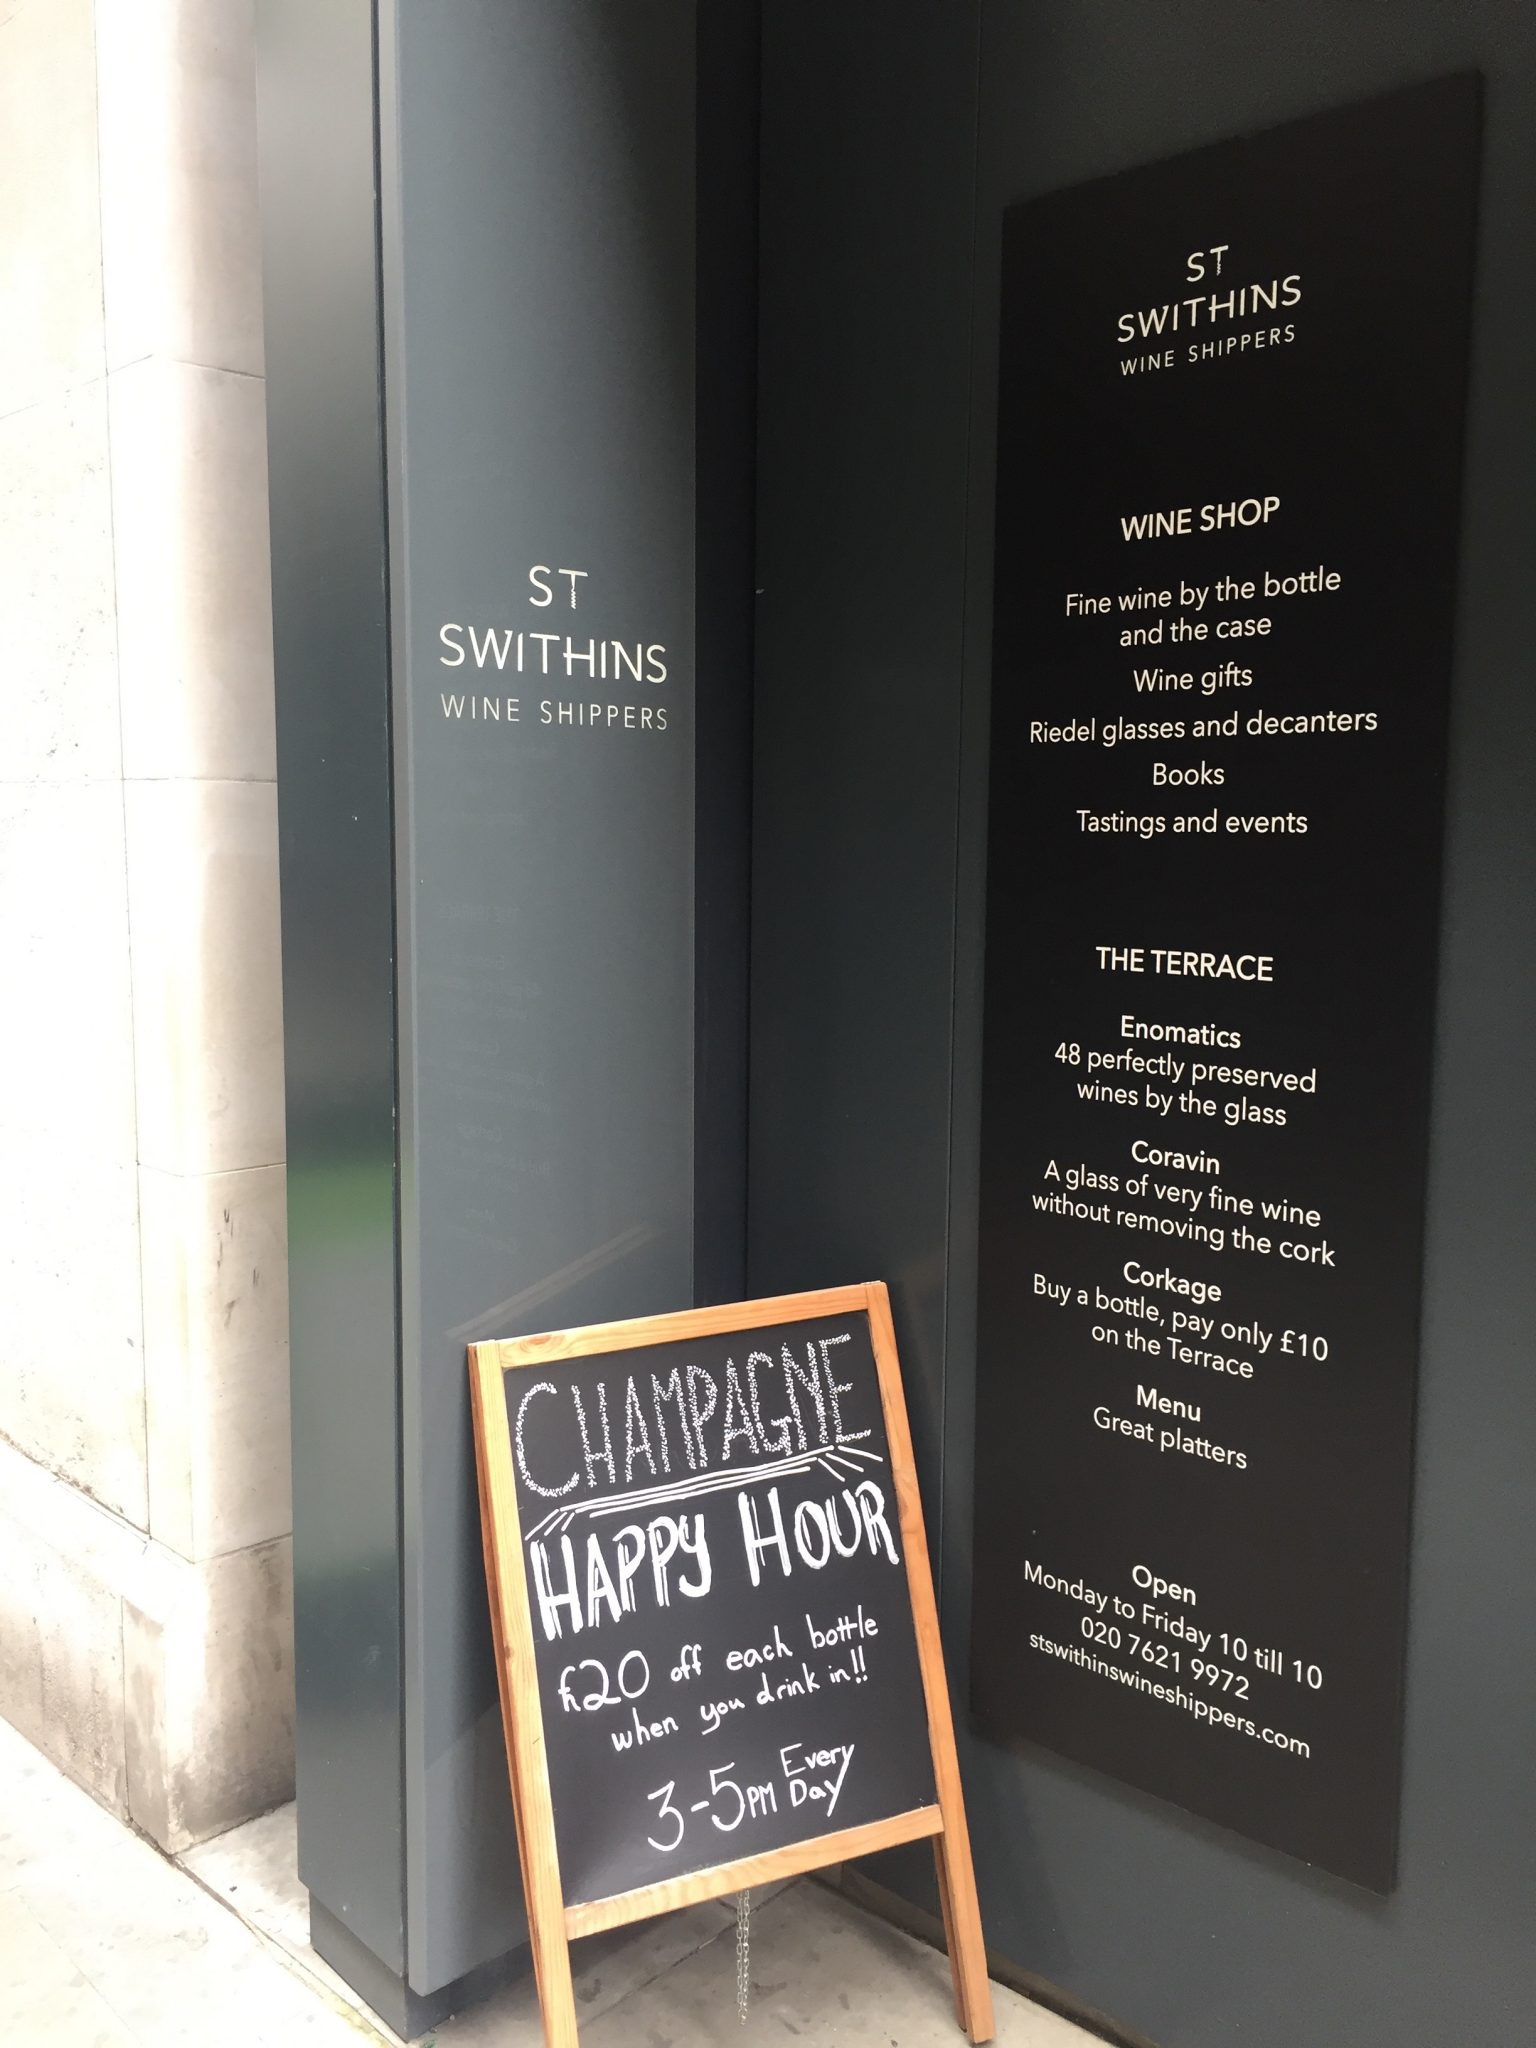 ST
SWITHINS
WINE SHIPPERS
ST
SWITHINS
WINE SHIPPERS
WINE SHOP
Fine wine by the bottle
and the case
Wine gifts
Riedel glasses and decanters
Books
Tastings and events
THE TERRACE
Enomatics
48 perfectly preserved
wines by the glass
Coravin
A glass of very fine wine
without removing the cork
Corkage
Buy a bottle, pay only £10
on the Terrace
Menu
Great platters
Open
Monday to Friday 10 till 10
020 7621 9972
stswithinswineshippers.com
CHAMPAGNE
HAPPY HOUR
£20 off each bottle
when you drink in!!
3-5PM Every
Day